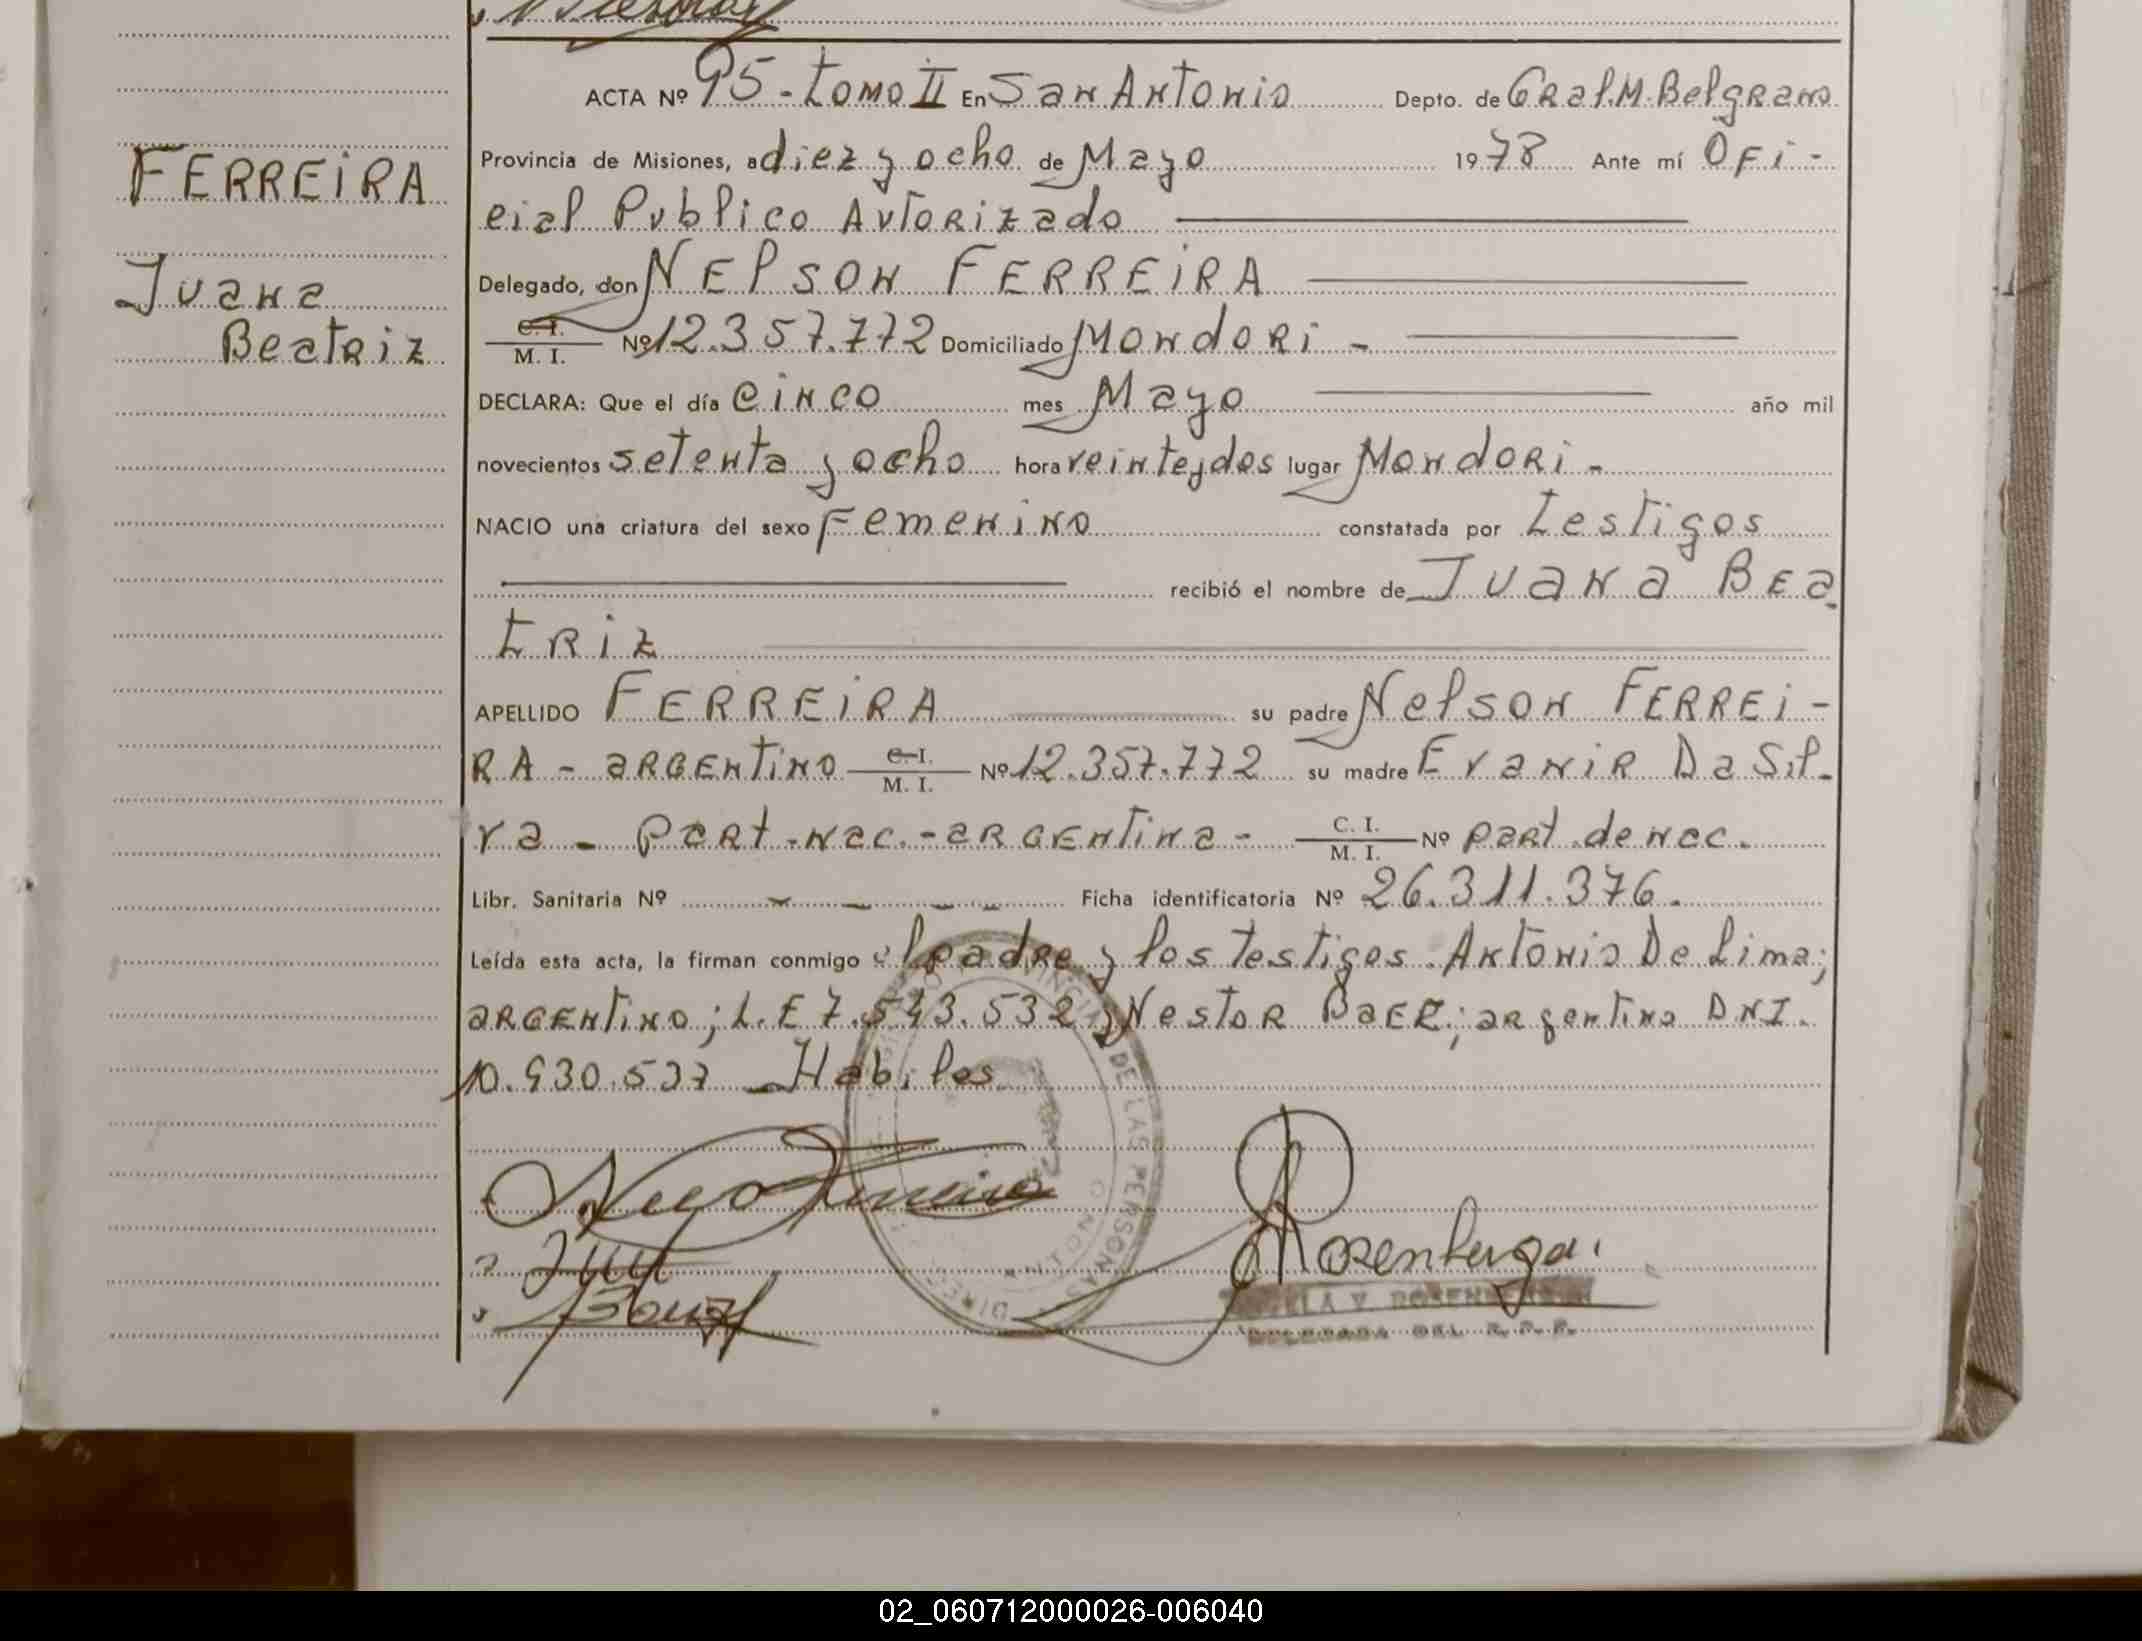 ACTA Nº 95 - Tomo II En San Antonio Depto. de Gral. M. Belgrano
FERREIRA
Provincia de Misiones, a diez y ocho de Mayo 1978 Ante mí Ofi-
cial Publico Autorizado
Juana
Delegado, don NELSON FERREIRA
Beatriz
C. I. / M. I. Nº 12.357.772 Domiciliado Mondori -
DECLARA: Que el día cinco mes Mayo año mil
novecientos setenta y ocho hora veinte y dos lugar Mondori -
NACIO una criatura del sexo Femenino constatada por Testigos
recibió el nombre de Juana Bea
triz
APELLIDO FERREIRA su padre Nelson FERREI-
RA - argentino C. I. / M. I. Nº 12.357.772 su madre Evanir Da Sil-
va - Part. nac. - argentina - C. I. / M. I. Nº part. de nac.
Libr. Sanitaria Nº - - - - Ficha identificatoria Nº 26.311.376.
Leída esta acta, la firman conmigo el padre y los testigos. Antonio De Lima;
argentino; L.E 7.543.532 y Nestor Baez; argentino DNI.
10.930.537 Habiles
DE LAS PERSONAS
Rosenberga
DELEGADA DEL R.P.P.
02_060712000026-006040